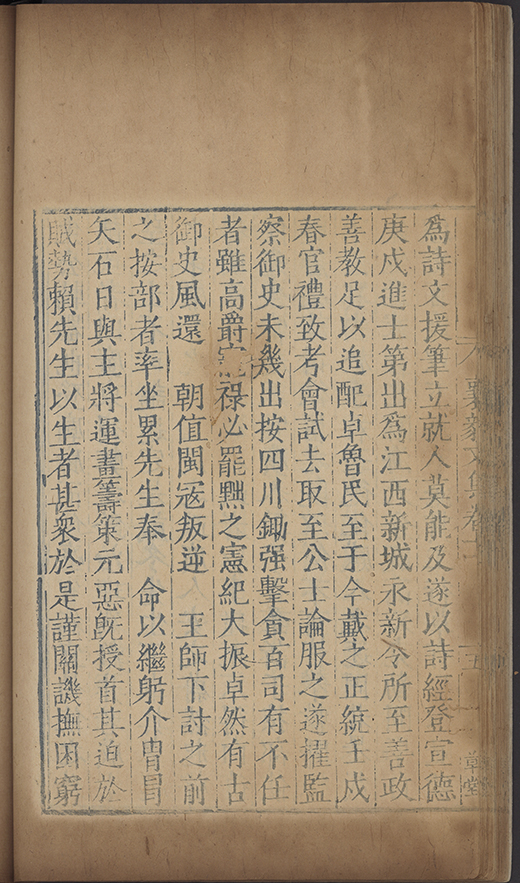 爲詩文援筆立就人莫能及遂以詩經登宣德
庚戍進士第出爲江西新城永新令所至善政
善教足以追配卓魯民至于今戴之正統壬戍
春官禮致考會試去取至公士論服之遂擢監
察御史未幾出按四川鋤强擊貪百司有不任
者雖高爵寵祿必罷黜之憲紀大振卓然有古
御史風還　朝值閩冦叛逆　王師下討之前
之按部者率坐累先生奉　命以繼躬介冑冒
矢石日與主將運畫籌策元惡旣授首其迫於
賊勢賴先生以生者甚衆於是謹關譏撫困窮